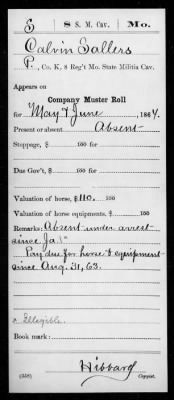 S 8 S. M. Cav. Mo.
Calvin Sallers
P., Co. K, 8 Reg't Mo. State Militia Cav.
Appears on
Company Muster Roll
for May & June, 1864.
Present or absent Absent
Stoppage, $ 100 for
Due Gov't, $ 100 for
Valuation of horse, $110. 100
Valuation of horse equipments, $ 100
Remarks: Absent under arrest
since Ja\*
Pay due for horse & equipment
since Aug. 31, 63.
* Illegible.
Book mark:
Hibbard
(358) Copyist.